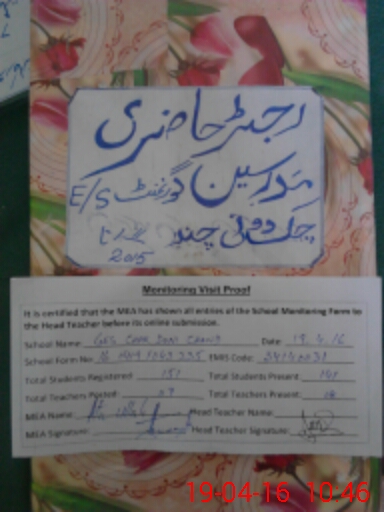 رجسٹر حاضری
مدرسین گورنمنٹ E/S
چک دونی چند
2015
Monitoring Visit Proof
It is certified that the MEA has shown all entries of the School Monitoring Form to
the Head Teacher before its online submission.
School Name: GES Chak Doni Chand Date: 19.4.16
School Form No: EMIS Code:
Total Students Registered: 151 Total Students Present:
Total Teachers Posted: 07 Total Teachers Present:
MEA Name: Head Teacher Name:
MEA Signature: Head Teacher Signature:
19-04-16 10:46